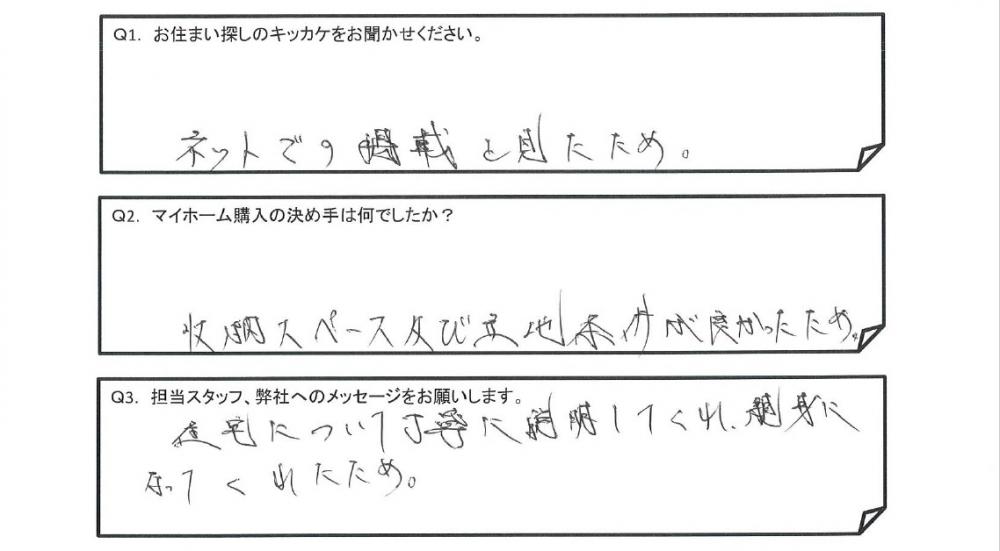 Q1. お住まい探しのキッカケをお聞かせください。
ネットでの掲載を見たため。
Q2. マイホーム購入の決め手は何でしたか？
収納スペース及び立地条件が良かったため。
Q3. 担当スタッフ、弊社へのメッセージをお願いします。
住宅について丁寧に説明してくれ、親身に
なってくれたため。